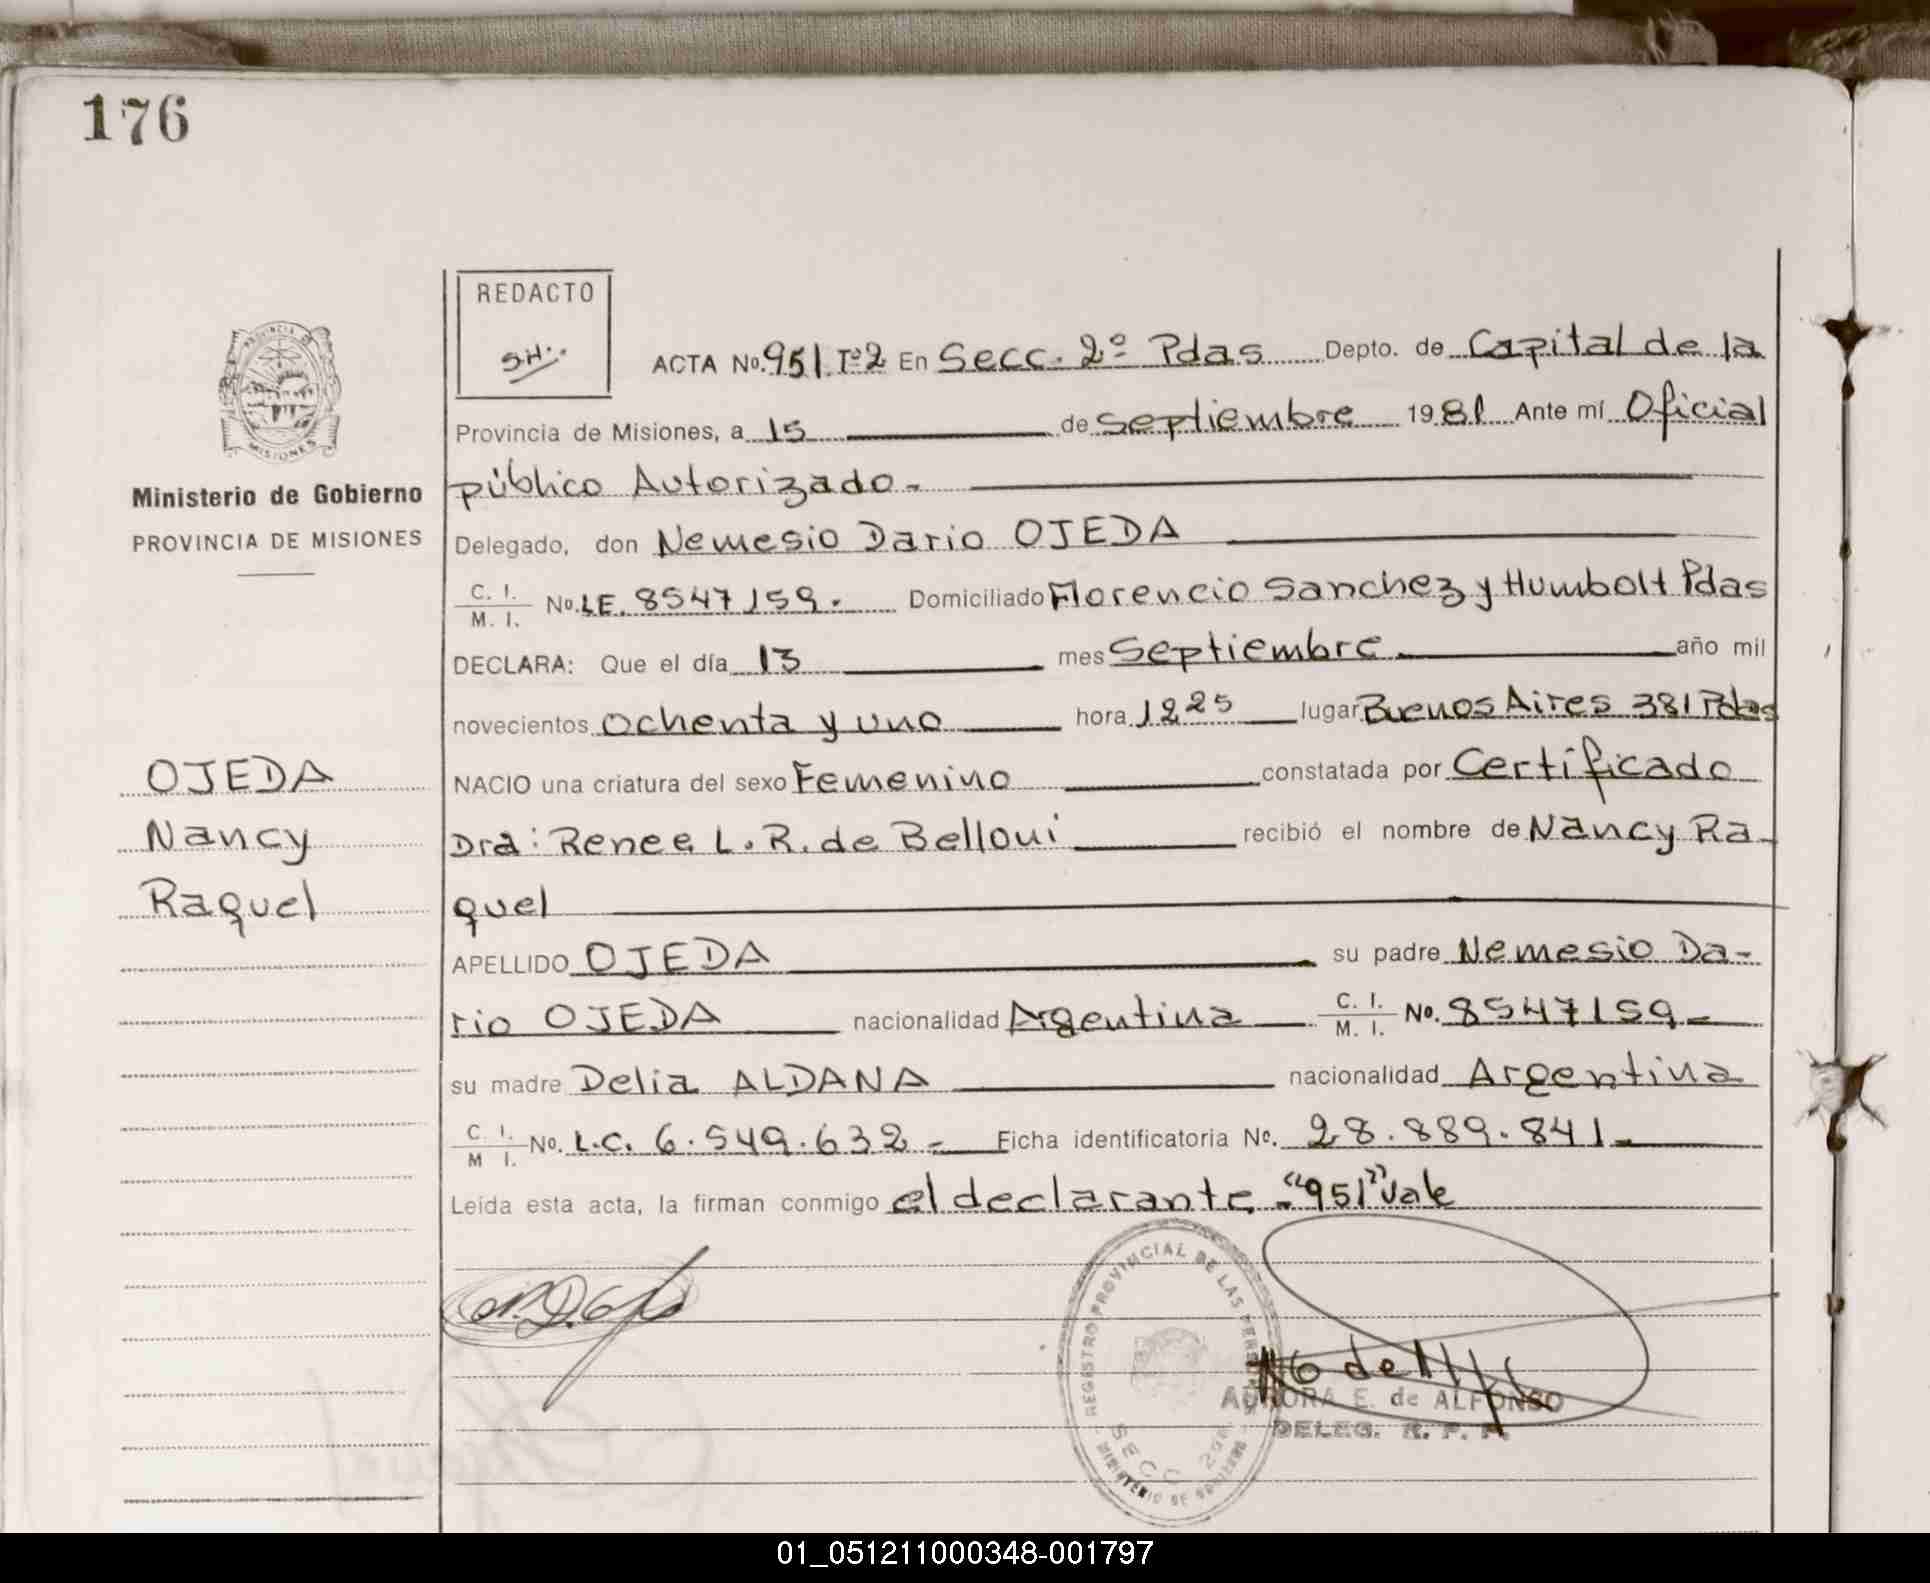 176
REDACTO
S.H.
PROVINCIA DE
MISIONES
ACTA No. 951 Tº2 En Secc. 2º Pdas Depto. de Capital de la
Provincia de Misiones, a 15 de Septiembre 1981 Ante mí Oficial
Ministerio de Gobierno
público Autorizado.-
PROVINCIA DE MISIONES
Delegado, don Nemesio Dario OJEDA
C. I.
M. I. No. LE. 8547159. Domiciliado Florencio Sanchez y Humbolt Pdas
DECLARA: Que el día 13 mes Septiembre año mil
novecientos ochenta y uno hora 12 25 lugar Buenos Aires 381 Pdas
OJEDA
NACIO una criatura del sexo Femenino constatada por Certificado
Nancy
Dra: Renee L. R. de Belloui recibió el nombre de Nancy Ra-
Raquel
quel
APELLIDO OJEDA su padre Nemesio Da-
rio OJEDA nacionalidad Argentina C. I. M. I. No. 8547159-
su madre Delia ALDANA nacionalidad Argentina
C. I.
M I. No. L.C. 6.549.632- Ficha identificatoria No. 28.889.841-
Leída esta acta, la firman conmigo el declarante.- "951" vale
REGISTRO PROVINCIAL DE LAS PERS
SECC 2da
MINISTERIO DE GOBIERNO
AURORA E. de ALFONSO
DELEG. R. P. P.
01_051211000348-001797